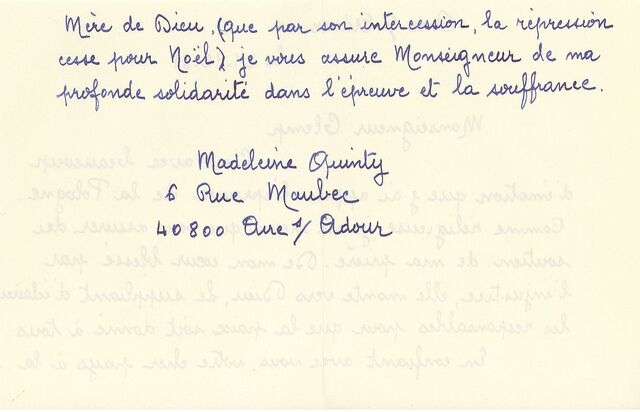 Mère de Dieu, (que par son intercession, la répression
cesse pour Noël) je vous assure Monseigneur de ma
profonde solidarité dans l'épreuve et la souffrance.
Madeleine Quinty
6 Rue Maubec
40800 Aire s/ Adour